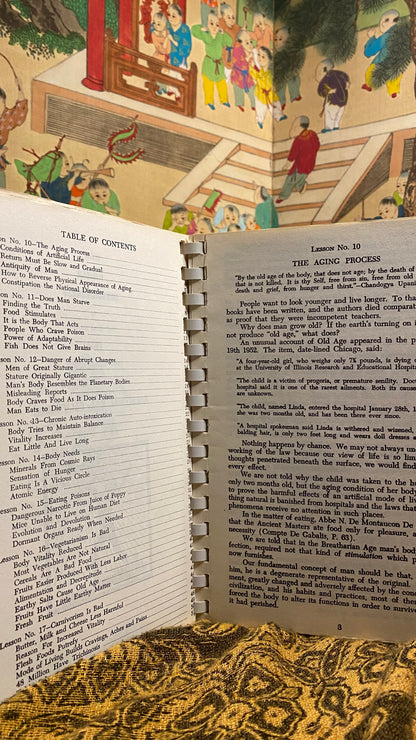 TABLE OF CONTENTS
on No. 10—The Aging Process
Conditions of Artificial Life
Return Must Be Slow and Gradual
Antiquity of Man
How to Reverse Physical Appearance of Aging
Constipation the National Disorder
esson No. 11—Does Man Starve
Finding the Truth
Food Stimulates
It is the Body That Acts
People Who Crave Poison
Power of Adaptability
Fish Does Not Give Brains
Lesson No. 12—Danger of Abrupt Changes
Men of Great Stature
Stature Originally Gigantic
Man's Body Resembles the Planetary Bodies
Misleading Reports
Body Craves Food As It Does Poison
Man Eats to Die
Lesson No. 13—Chronic Auto-intoxication
Body Tries to Maintain Balance
Vitality Increases
Eat Little And Live Long
Lesson No. 14—Body Needs
Minerals From Cosmic Rays
Sensation of Hunger
Eating Is a Vicious Circle
Atomic Energy
Lesson No. 15—Eating Poison
Dangerous Narcotic From Juice of Poppy
Mice Unable to Live on Human Diet
Evolution and Devolution
Dormant Organs Ready When Needed
Lesson No. 16—Vegetarianism Is Bad
Body Vitality Reduced
Most Vegetables Are Not Natural
Cereals Are A Bad Food
Fruits Easier Produced With Less Labor
Alimentation and Decrepitude
Earthy Salts Cause Old Age
Fruits Have Little Earthy Matter
Fresh Fruit
Lesson No. 17—Carnivorism Is Bad
Butter, Milk and Cheese Less Harmful
Reason For Increased Vitality
Flesh Foods Putrefy
Mode of Living Builds Cravings, Aches and Pains
48 Million Have Trichinosis
LESSON No. 10
THE AGING PROCESS
"By the old age of the body, that does not age; by the death of
that is not killed. It is thy Self, free from sin, free from old
death and grief, from hunger and thirst"—Chandogya Upani
People want to look younger and live longer. To tha
books have been written, and the authors died comparat
as proof that they were incompetent teachers.
Why does man grow old? If the earth's turning on
not produce "old age", what does?
An unusual account of Old Age appeared in the p
19th 1952. The item, date-lined Chicago, said:
"A four-year-old girl, who weighs only 7½ pounds, is dying o
at the University of Illinois Research and Educational Hospita
"The child is a victim of progeria, or premature senility. Doc
hospital said it is one of the rarest ailments. Both its cause
are unknown.
"The child, named Linda, entered the hospital January 28th,
she was two months old, and has been there ever since.
"A hospital spokesman said Linda is withered and wizened,
balding hair, is only two feet long and wears doll dresses
Nothing happens by chance. We may not always un
working of the law because our view of life is so lim
thoughts penetrated beneath the surface, we would fin
every effect.
We are not told why the child was taken to the ho
only two months old, but the aging condition of her b
to prove the harmful effects of an artificial mode of li
thing natural is banished from hospitals and the laws tha
phenomena receive no attention in such places.
In the matter of eating, Abbe N. De Montaucon De
that the Ancient Masters ate food only for pleasure, a
necessity (Compte De Gabalis, P. 63).
We are told that in the Breatharian Age man's bod
fection, required not that kind of stimulation which p
now furnishes.
Our fundamental concept of man should be that,
him, he is a degenerate representative of the original.
ment, greatly changed and adversely affected by the condi
civilization, and his habits and practices, most of the
forced the body to alter its functions in order to surviv
it had perished.
3